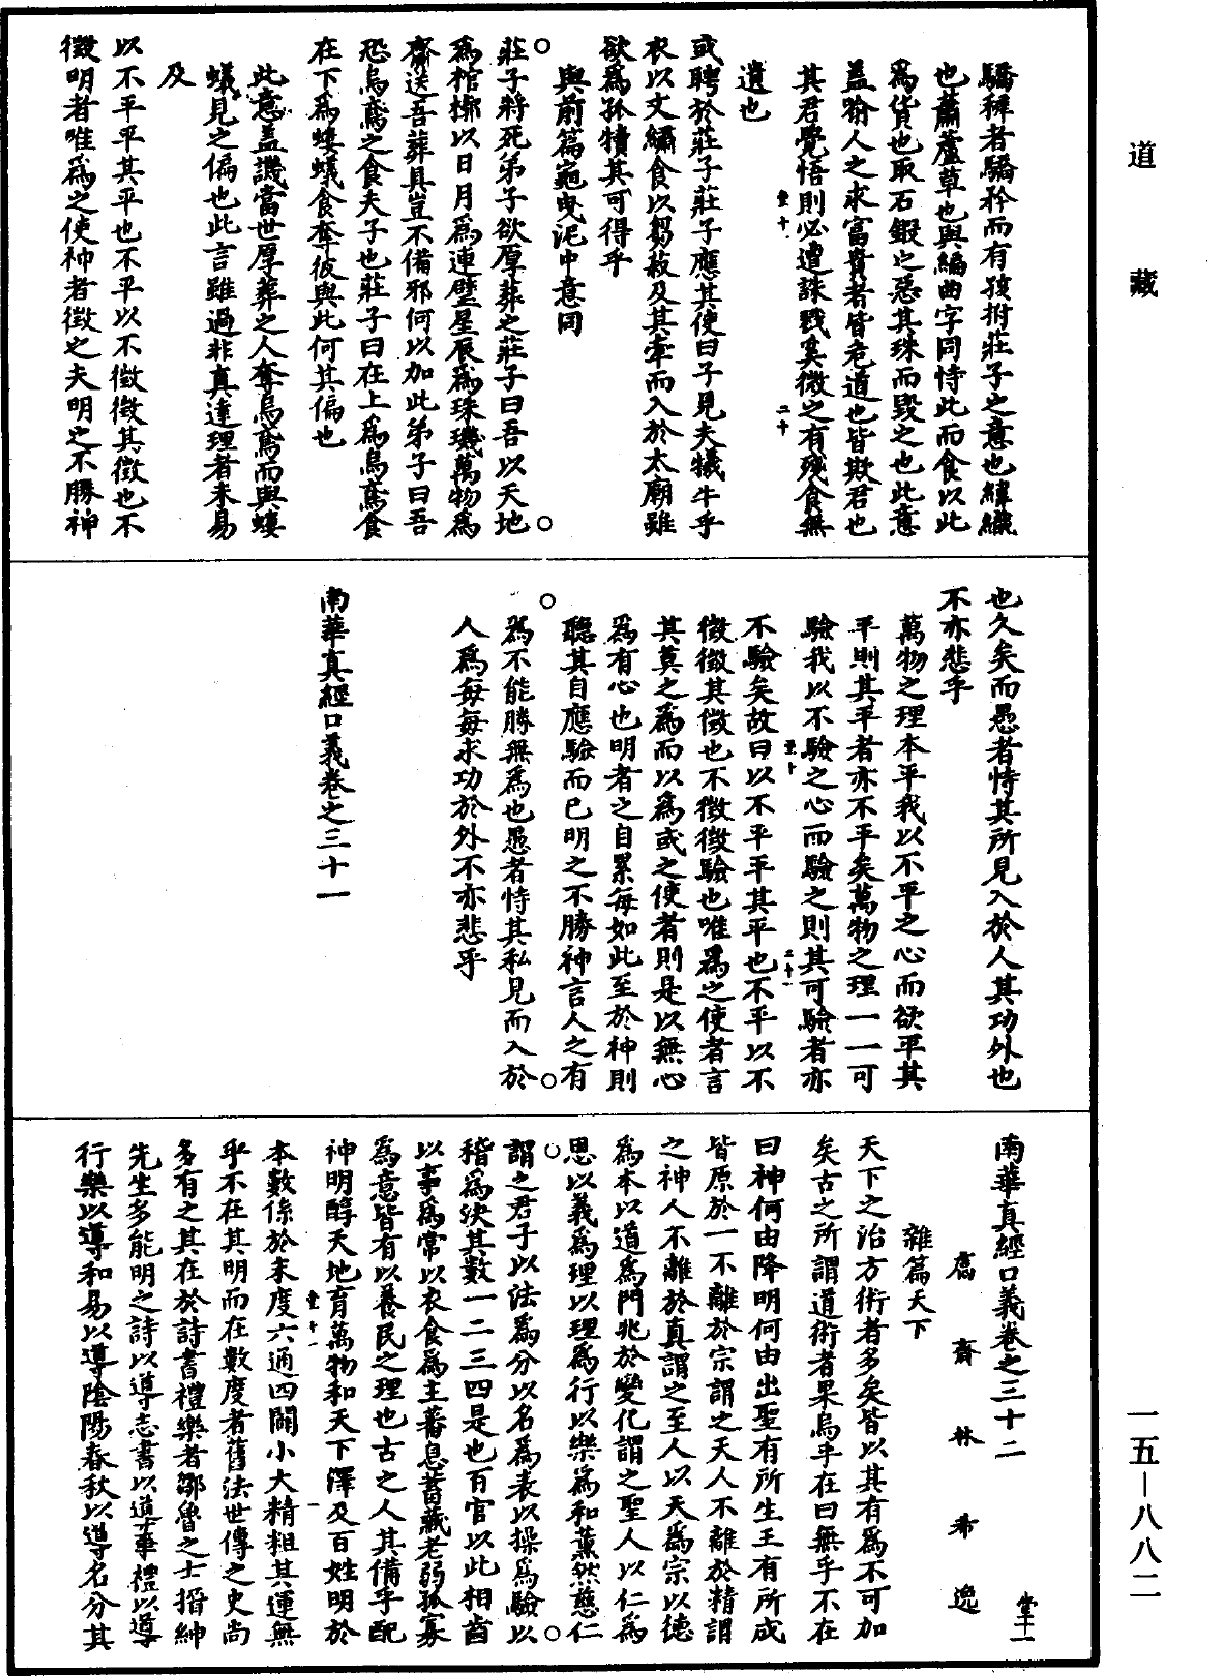 道藏
驕穉者驕矜而有孩拊莊子之意也緯織
也蕭蘆草也與編曲字同恃此而食以此
爲貨也取石鍛之恐其珠而毀之也此意
蓋喻人之求富貴者皆危道也皆欺君也
其君覺悟則必遭誅戮奚微之有殘食無
遺也
或聘於莊子莊子應其使曰子見夫犧牛乎
衣以文繡食以芻菽及其牽而入於太廟雖
欲爲孤犢其可得乎
與前篇龜曳泥中意同
莊子將死弟子欲厚葬之莊子曰吾以天地
爲棺槨以日月爲連璧星辰爲珠璣萬物爲
齎送吾葬具豈不備邪何以加此弟子曰吾
恐烏鳶之食夫子也莊子曰在上爲烏鳶食
在下爲螻蟻食奪彼與此何其偏也
此意蓋譏當世厚葬之人奪烏鳶而與螻
蟻見之偏也此言雖過非真達理者未易
及
以不平平其平也不平以不徵徵其徵也不
徵明者唯爲之使神者徵之夫明之不勝神
也久矣而愚者恃其所見入於人其功外也
不亦悲乎
萬物之理本平我以不平之心而欲平其
平則其平者亦不平矣萬物之理一一可
驗我以不驗之心而驗之則其可驗者亦
不驗矣故曰以不平平其平也不平以不
徵徵其徵也不徵徵驗也唯爲之使者言
其莫之爲而以爲或之使者則是以無心
爲有心也明者之自累每如此至於神則
聽其自應驗而已明之不勝神言人之有
爲不能勝無爲也愚者恃其私見而入於
人爲每每求功於外不亦悲乎
南華真經口義卷之三十一
南華真經口義卷之三十二
鬳齋林希逸
雜篇天下
天下之治方術者多矣皆以其有爲不可加
矣古之所謂道術者果烏乎在曰無乎不在
曰神何由降明何由出聖有所生王有所成
皆原於一不離於宗謂之天人不離於精謂
之神人不離於真謂之至人以天爲宗以德
爲本以道爲門兆於變化謂之聖人以仁爲
恩以義爲理以理爲行以樂爲和薰然慈仁
謂之君子以法爲分以名爲表以操爲驗以
稽爲決其數一二三四是也百官以此相齒
以事爲常以衣食爲主蕃息蓄藏老弱孤寡
爲意皆有以養民之理也古之人其備乎配
神明醇天地育萬物和天下澤及百姓明於
本數係於末度六通四闢小大精粗其運無
乎不在其明而在數度者舊法世傳之史尚
多有之其在於詩書禮樂者鄒魯之士搢紳
先生多能明之詩以導志書以導事禮以導
行樂以導和易以導陰陽春秋以導名分其
一五—八八二